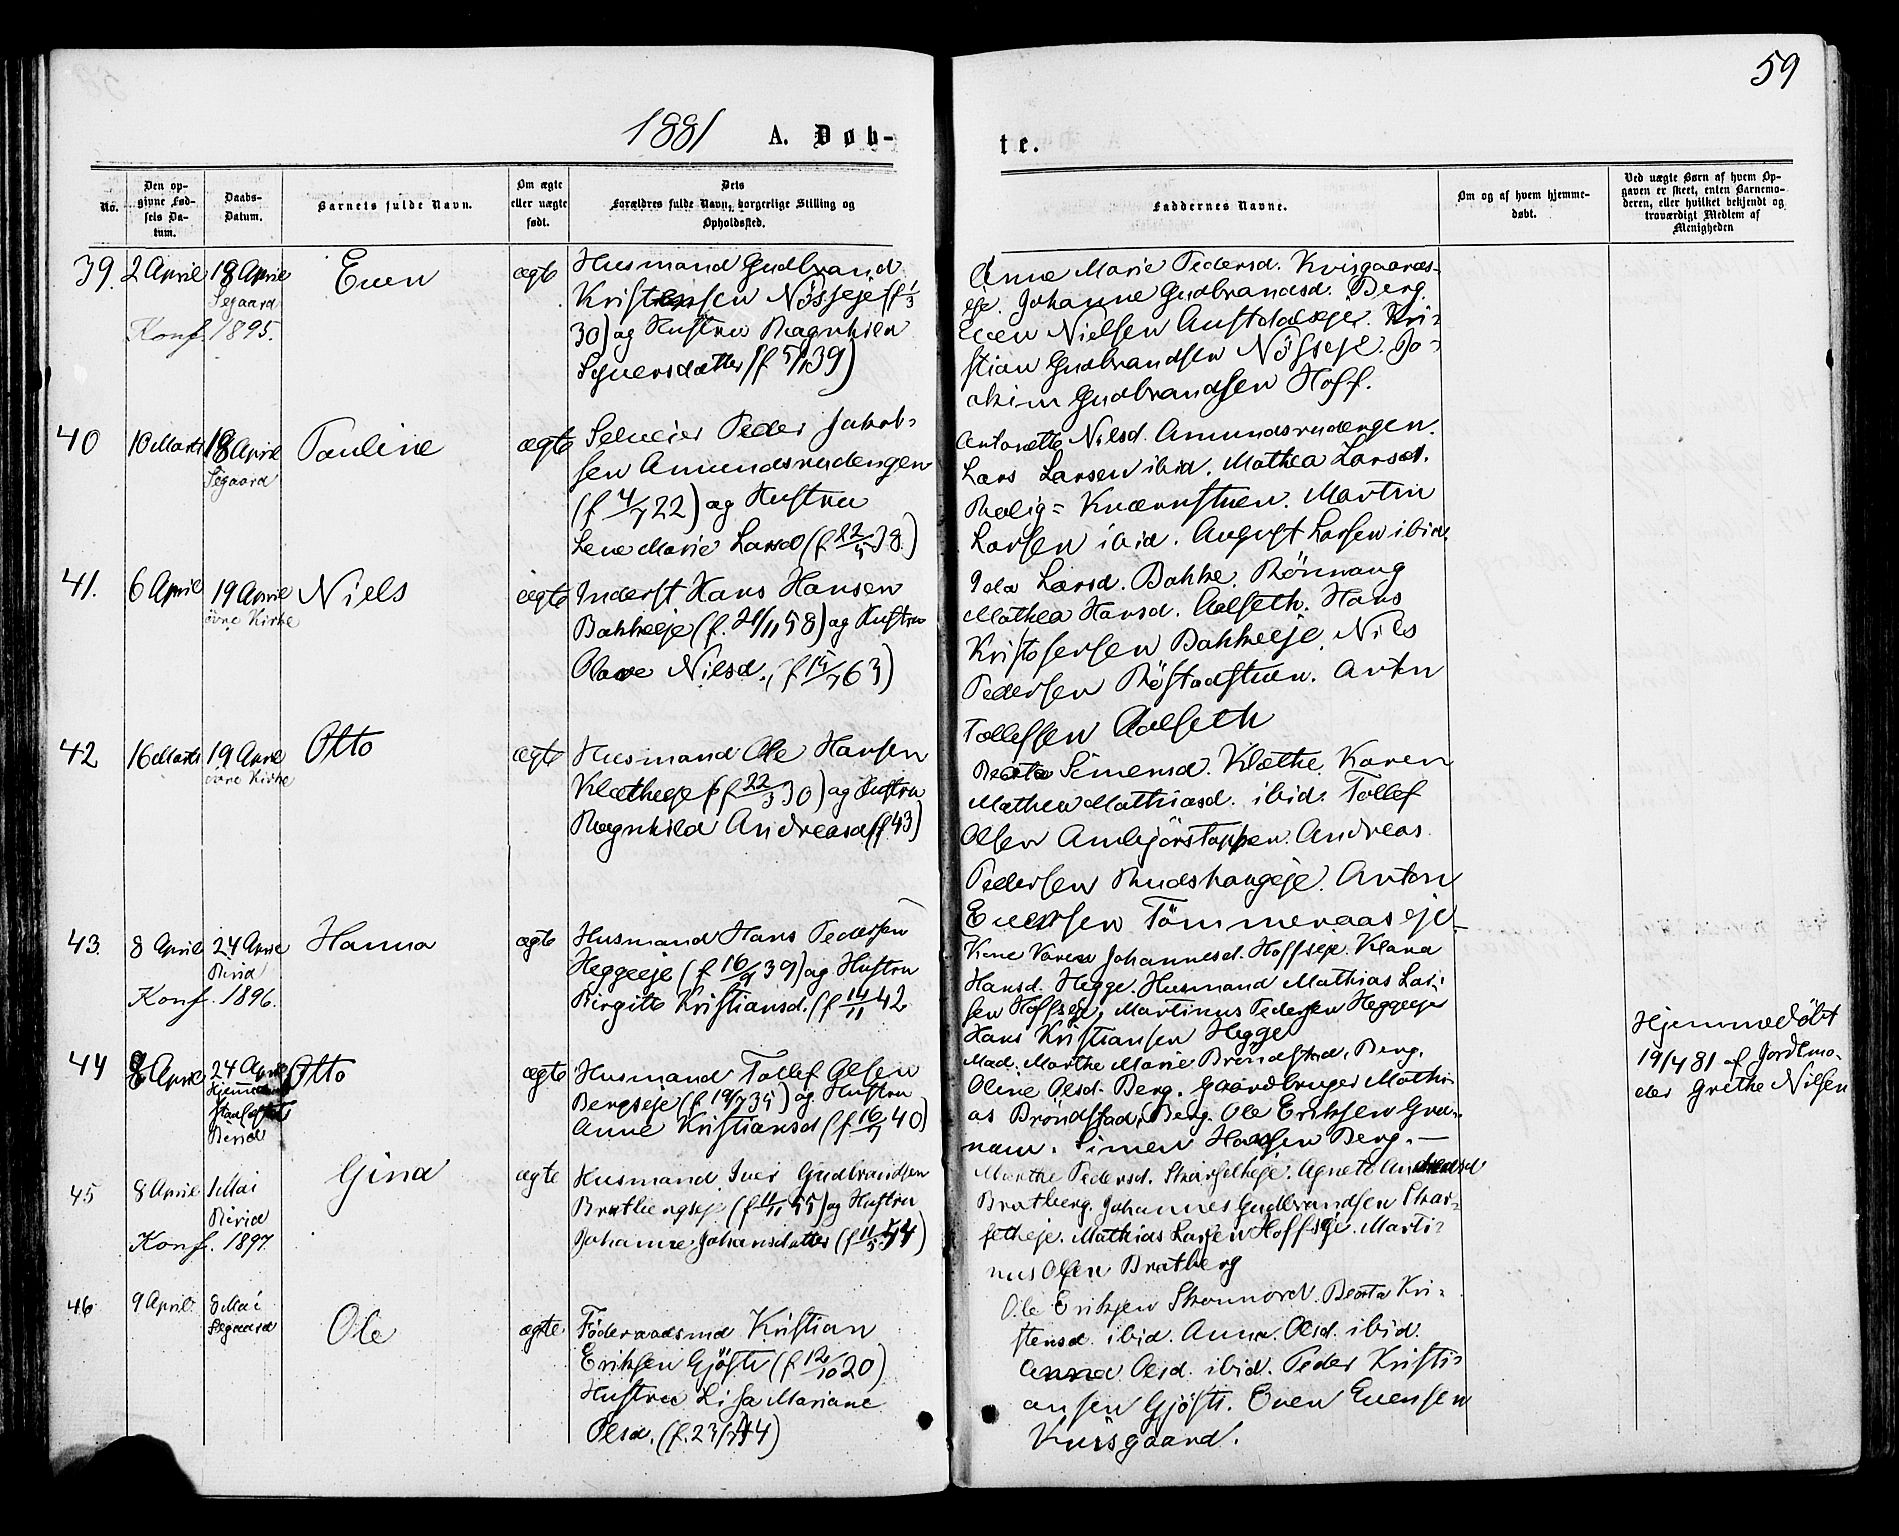 59
1881 A. Døb-
te.
No.
Den op-
givne Fød-
sels Da-
tum.
Daabs-
Datum.
Barnets fulde Navn.
Om ægte
eller uægte
født.
Dets
Forældres fulde Navn, borgerlige Stilling og
Opholdssted.
Faddernes Navne.
Om og af hvem hjemme-
døbt.
Ved uægte Børn af hvem Op-
gaven er skeet, enten Barnemo-
deren, eller hvilket bekjendt og
troværdigt Medlem af
Menigheden
39. 2 April 18 April Even ægte
Segaard
Konf. 1895.
Husmand Gudbrand
Kristensen Nøsseje (f
30) og Hustru Ragnhild
Syversdatter (f 39)
Anne Marie Pedersd. Kvisgaards-
eje. Johanne Gudbrandsd. Berg.
Even Nielsen Austdalseje. Kri-
stian Gudbrandsen Nøsseje. Jo-
akim Gudbrandsen Hoff.
40 10 Marts 18 April Pauline ægte
Segaard
Selveier Peder Jakob-
sen Amundsrudengen
(f 4/7 22) og Hustru
Lene Marie Larsd (f 22/5 38.)
Antonette Nilsd. Amundsrudengen.
Lars Larsen ibid. Mathea Larsd.
Bælig= Kværnstuen. Martin
Larsen ibid. August Larsen ibid.
41. 6 April 19 April Niels ægte
övre Kirke
Inderst Hans Hansen
Bakkeeje (f. 21/11 58) og Hustru
Olave Nilsd., (f 15/7 63)
Ida Larsd. Bakke. Rönnaug
Mathea Hansd. Aalseth. Hans
Kristofersen Bakkeeje. Nils
Pedersen Röstadstuen. Anton
Tollefsen Aalseth
42 16 Marts 19 April Otto ægte
övre Kirke
Husmand Ole Hansen
Klætheeje (f 22/3 30) og Hustru
Ragnhild Andreasd (f 43)
Beate Simensd. Klæthe. Karen
Mathea Mathiasd. ibid. Tollef
Olsen Ambjörstappen. Andreas
Pedersen Rudshaugeje. Anton
Evensen Tömmeraaseje
43. 8 April 24 April Hanna ægte
Birid
Konf. 1896.
Husmand Hans Pedersen
Heggeeje (f 16/9 39) og Hustru
Birgitte Kristiansd. (f 14/11 42
Kone Karen Johannesd. Hoffseje. Klara
Hansd. Hegge. Husmand Mathias Lar-
sen Hoffseje, Martinus Pedersen Heggeeje
Hans Kristiansen Hegge
44 8 April 24 April Otto ægte
Hjemme
Birid
Husmand Tollef Olsen
Bergseje (f 19/7 35) og Hustru
Anne Kristiansd (f 16/7 40)
Mad. Marthe Marie Bröndstad, Berg.
Oline Olsd. Berg. Gaardbruger Mathi-
as Bröndstad, Berg. Ole Eriksen Gru-
nam. Simen Hansen Berg.—
Hjemmedöbt
19/4 81 af Jordemo-
der Grethe Nilsen
45 8 April 1 Mai Gina ægte
Birid
Konf. 1897.
Husmand Iver Gudbrandsen
Bratbergseje (f 11/11 55) og Hustru
Johanne Johansdatter (f 11/5 54)
Marthe Pedersd. Skarsetheje. Agnete Andreasd
Bratberg. Johannes Gudbrandsen Skar-
setheje. Mathias Larsen Hoffseje. Marti-
nus Olsen Bratberg
46 9 April 8 Mai Ole ægte
Segaard
Föderaadsmd Kristian
Eriksen Gjösti (f 12/10 20)
Hustru Lisa Mariane
Olsd. (f. 23/ 44)
Ole Eriksen Skonnord. Beata Kri-
stensd. ibid. Anne. Olsd. ibid.
Anna Olsd. ibid. Peder Kristi-
ansen Gjösti. Even Evensen
Kvisgaard.